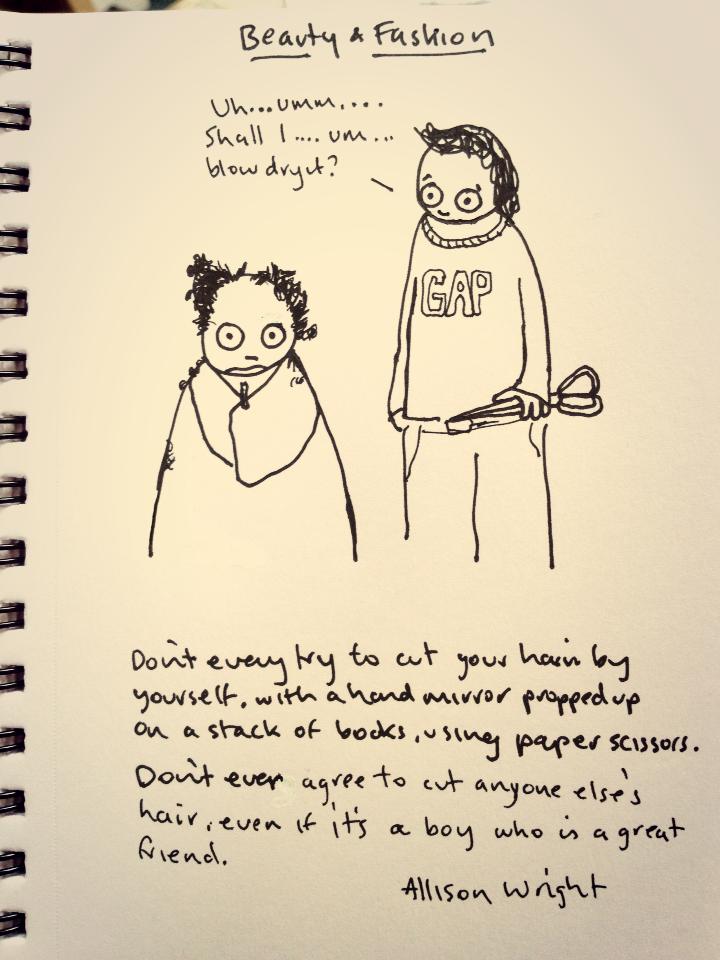 Beauty & Fashion
Uh...umm....
Shall I .... um...
blow dry it?
GAP
Don't every try to cut your hair by
yourself, with a hand mirror propped up
on a stack of books, using paper scissors.
Don't ever agree to cut anyone else's
hair, even if it's a boy who is a great
friend.
Allison Wright